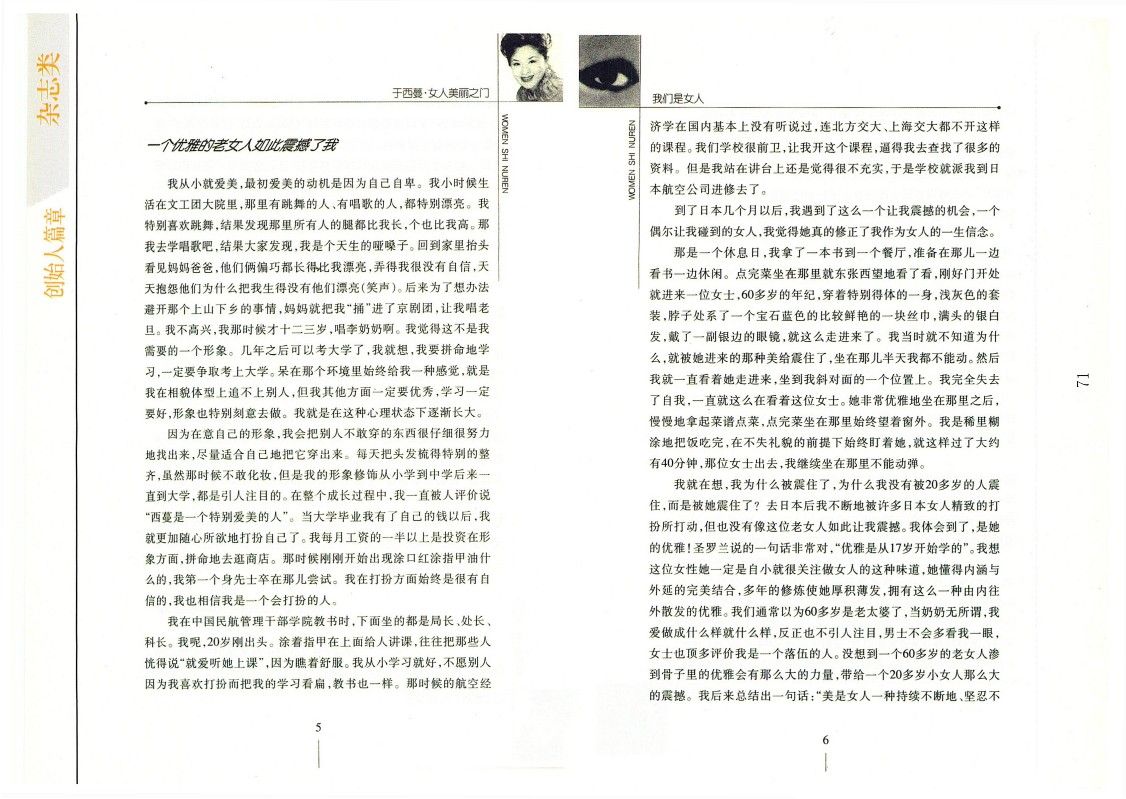 杂志类
创始人篇章
于西曼·女人美丽之门
WOMEN SHI NUREN
一个优雅的老女人如此震撼了我
我从小就爱美,最初爱美的动机是因为自己自卑。我小时候生
活在文工团大院里,那里有跳舞的人、有唱歌的人,都特别漂亮。我
特别喜欢跳舞,结果发现那里所有人的腿都比我长,个也比我高。那
我去学唱歌吧,结果大家发现,我是个天生的哑嗓子。回到家里抬头
看见妈妈爸爸,他们俩偏巧都长得比我漂亮,弄得我很没有自信,天
天抱怨他们为什么把我生得没有他们漂亮(笑声)。后来为了想办法
避开那个上山下乡的事情,妈妈就把我“捅”进了京剧团,让我唱老
旦。我不高兴,我那时候才十二三岁,唱李奶奶啊。我觉得这不是我
需要的一个形象。几年之后可以考大学了,我就想,我要拼命地学
习,一定要争取考上大学。呆在那个环境里始终给我一种感觉,就是
我在相貌体型上追不上别人,但我其他方面一定要优秀,学习一定
要好,形象也特别刻意去做。我就是在这种心理状态下逐渐长大。
因为在意自己的形象,我会把别人不敢穿的东西很仔细很努力
地找出来,尽量适合自己地把它穿出来。每天把头发梳得特别的整
齐,虽然那时候不敢化妆,但是我的形象修饰从小学到中学后来一
直到大学,都是引人注目的。在整个成长过程中,我一直被人评价说
“西蔓是一个特别爱美的人”。当大学毕业我有了自己的钱以后,我
就更加随心所欲地打扮自己了。我每月工资的一半以上是投资在形
象方面,拼命地去逛商店。那时候刚刚开始出现涂口红涂指甲油什
么的,我第一个身先士卒在那儿尝试。我在打扮方面始终是很有自
信的,我也相信我是一个会打扮的人。
我在中国民航管理干部学院教书时,下面坐的都是局长、处长、
科长。我呢,20岁刚出头。涂着指甲在上面给人讲课,往往把那些人
恍得说“就爱听她上课”,因为瞧着舒服。我从小学习就好,不愿别人
因为我喜欢打扮而把我的学习看扁,教书也一样。那时候的航空经
5
我们是女人
WOMEN SHI NUREN
济学在国内基本上没有听说过,连北方交大、上海交大都不开这样
的课程。我们学校很前卫,让我开这个课程,逼得我去查找了很多的
资料。但是我站在讲台上还是觉得很不充实,于是学校就派我到日
本航空公司进修去了。
到了日本几个月以后,我遇到了这么一个让我震撼的机会,一个
偶尔让我碰到的女人,我觉得她真的修正了我作为女人的一生信念。
那是一个休息日,我拿了一本书到一个餐厅,准备在那儿一边
看书一边休闲。点完菜坐在那里就东张西望地看了看,刚好门开处
就进来一位女士,60多岁的年纪,穿着特别得体的一身,浅灰色的套
装,脖子处系了一个宝石蓝色的比较鲜艳的一块丝巾,满头的银白
发,戴了一副银边的眼镜,就这么走进来了。我当时就不知道为什
么,就被她进来的那种美给震住了,坐在那儿半天我都不能动。然后
我就一直看着她走进来,坐到我斜对面的一个位置上。我完全失去
了自我,一直就这么在看着这位女士。她非常优雅地坐在那里之后,
慢慢地拿起菜谱点菜,点完菜坐在那里始终望着窗外。我是稀里糊
涂地把饭吃完,在不失礼貌的前提下始终盯着她,就这样过了大约
有40分钟,那位女士出去,我继续坐在那里不能动弹。
我就在想,我为什么被震住了,为什么我没有被20多岁的人震
住,而是被她震住了?去日本后我不断地被许多日本女人精致的打
扮所打动,但也没有像这位老女人如此让我震撼。我体会到了,是她
的优雅!圣罗兰说的一句话非常对,“优雅是从17岁开始学的”。我想
这位女性她一定是自小就很关注做女人的这种味道,她懂得内涵与
外延的完美结合,多年的修炼使她厚积薄发,拥有这么一种由内往
外散发的优雅。我们通常以为60多岁是老太婆了,当奶奶无所谓,我
爱做成什么样就什么样,反正也不引人注目,男士不会多看我一眼,
女士也顶多评价我是一个落伍的人。没想到一个60多岁的老女人渗
到骨子里的优雅会有那么大的力量,带给一个20多岁小女人那么大
的震撼。我后来总结出一句话:“美是女人一种持续不断地、坚忍不
6
71